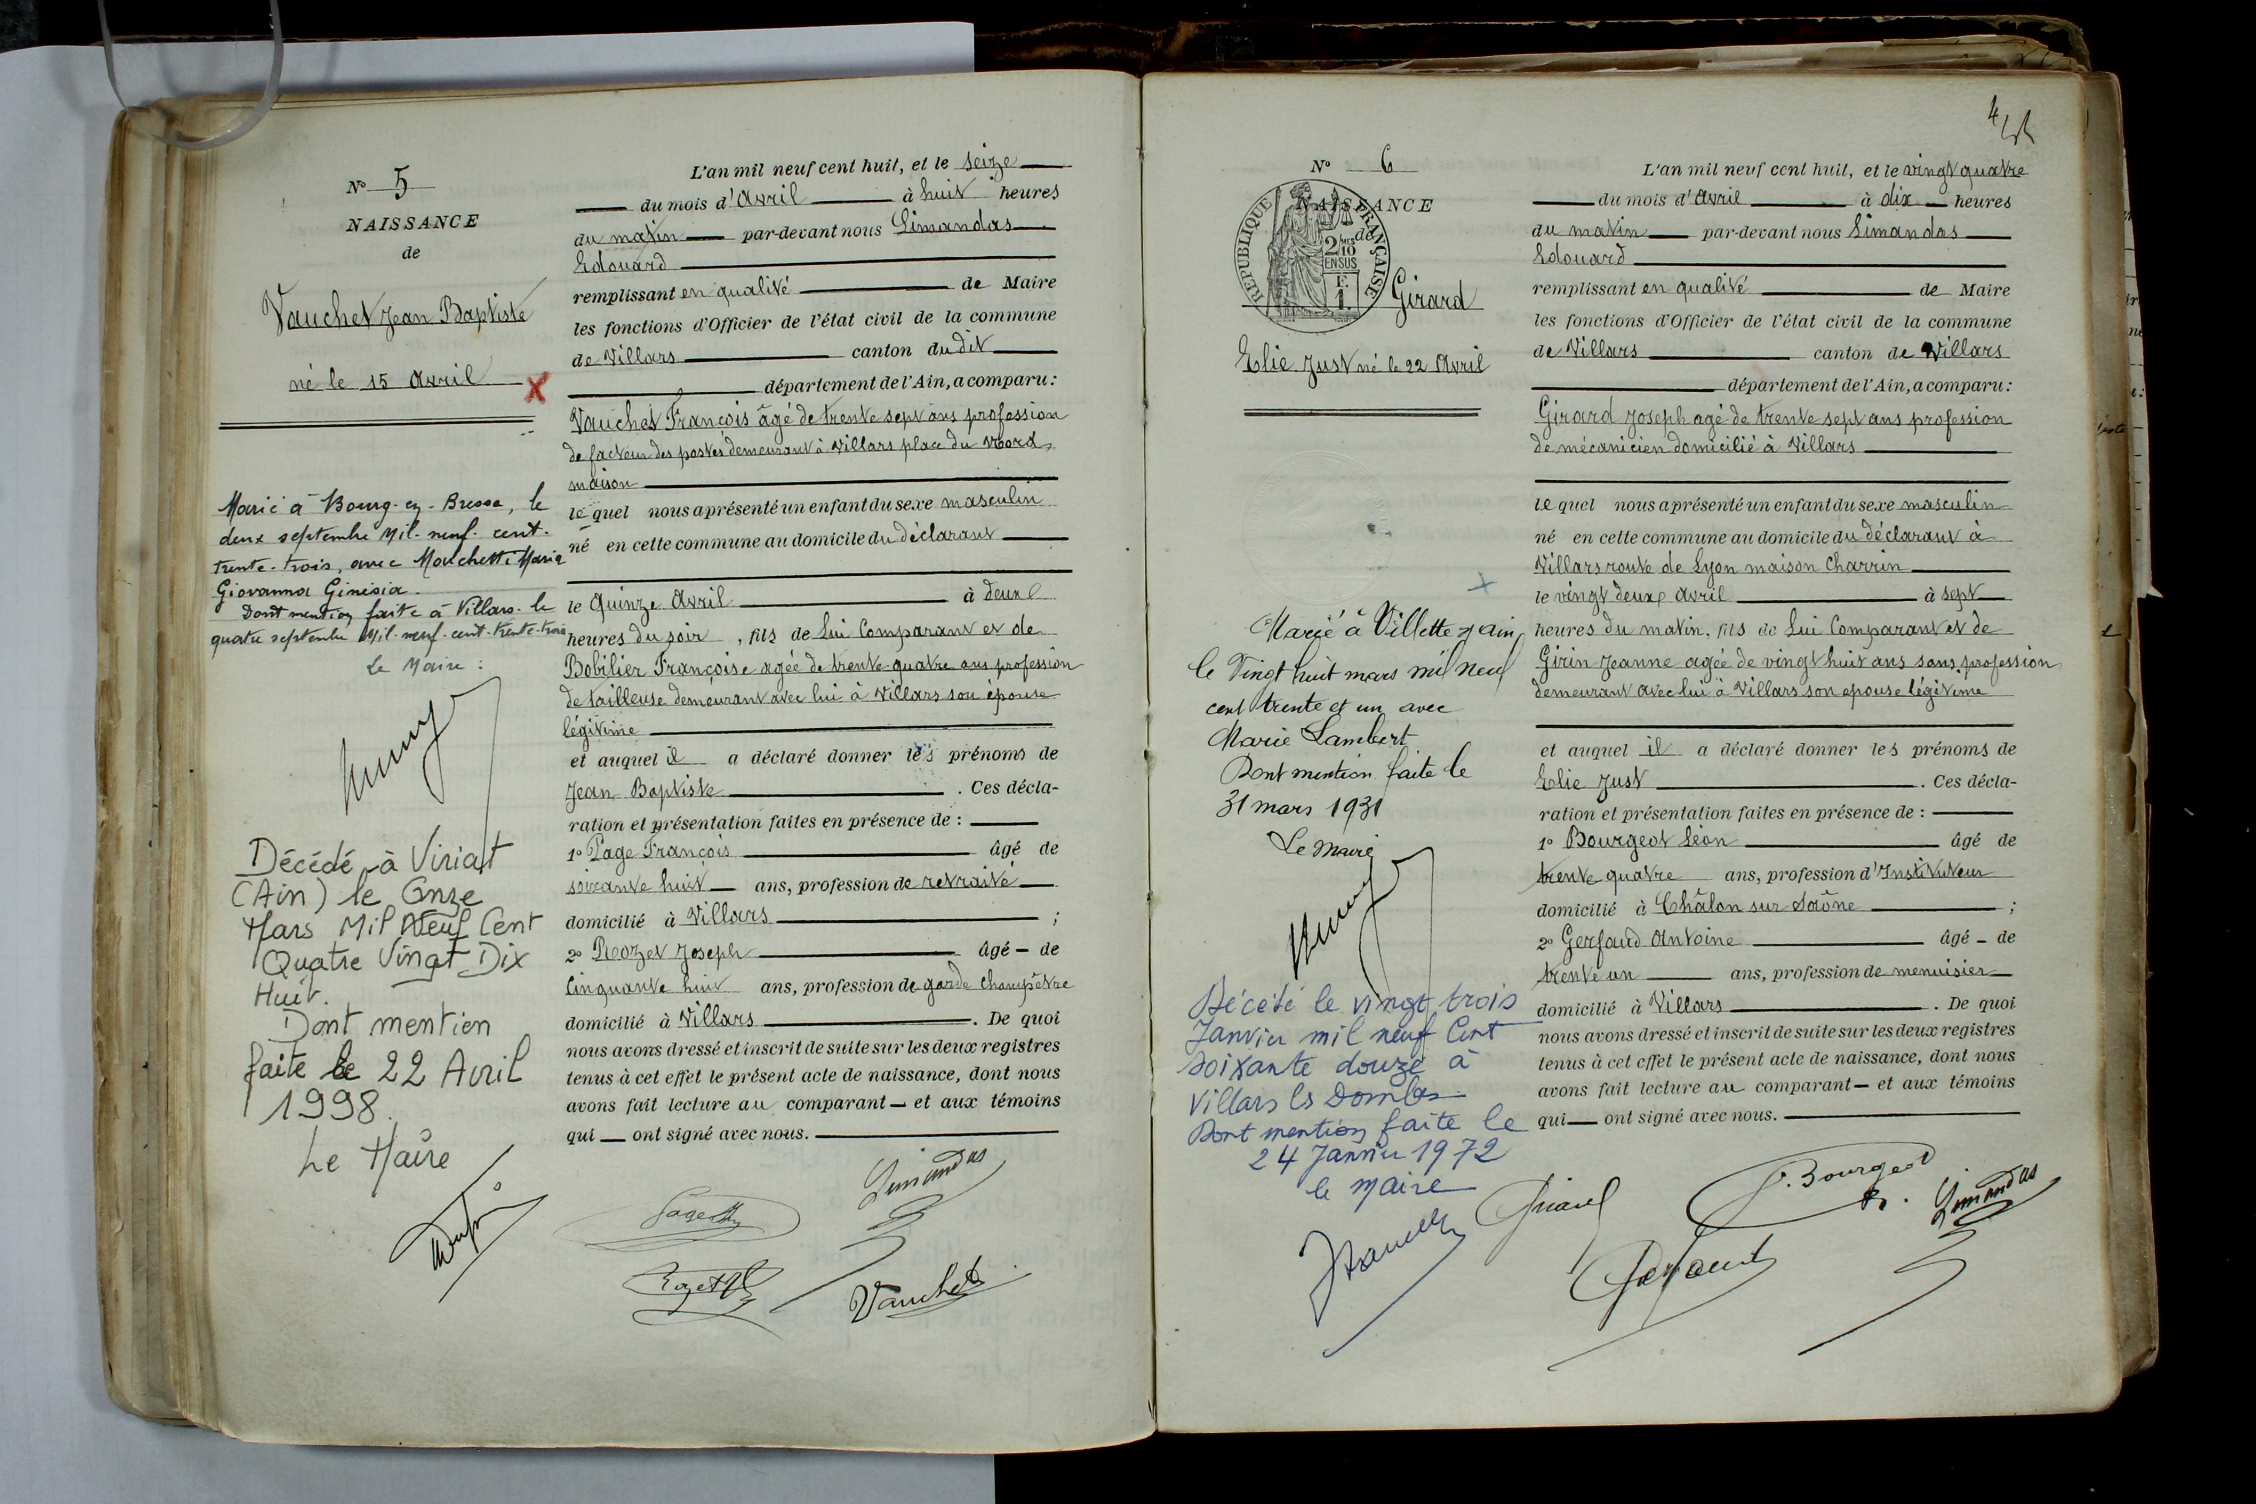 N° 5
NAISSANCE
de
Vauchet Jean Baptiste
né le 15 Avril
Marié à Bourg-en-Bresse, le
deux septembre mil-neuf-cent-
trente-trois, avec Mouchetti Maria
Giovanna Ginesia.
Dont mention faite à Villars le
quatre septembre mil-neuf-cent-trente-trois
Le Maire :
Décédé à Viriat
(Ain) le Onze
Mars Mil Neuf Cent
Quatre Vingt Dix
Huit.
Dont mention
faite le 22 Avril
1998.
Le Maire
L'an mil neuf cent huit, et le seize
du mois d'Avril à huit heures
du matin par-devant nous Limandas
Edouard
remplissant en qualité de Maire
les fonctions d'Officier de l'état civil de la commune
de Villars canton du dit
département de l'Ain, a comparu :
Vauchet François âgé de trente sept ans profession
de facteur des postes demeurant à Villars place du Nord,
maison
lequel nous a présenté un enfant du sexe masculin
né en cette commune au domicile du déclarant
le Quinze Avril à deux
heures du soir, fils de Lui Comparant et de
Bobilier Françoise agée de trente-quatre ans profession
de tailleuse demeurant avec lui à Villars son épouse
légitime
et auquel il a déclaré donner les prénoms de
Jean Baptiste. Ces décla-
ration et présentation faites en présence de :
1° Page François âgé de
soixante huit ans, profession de retraité
domicilié à Villars ;
2° Rozet Joseph âgé de
Cinquante huit ans, profession de garde champêtre
domicilié à Villars. De quoi
nous avons dressé et inscrit de suite sur les deux registres
tenus à cet effet le présent acte de naissance, dont nous
avons fait lecture au comparant et aux témoins
qui ont signé avec nous.
Limandas
Page
Rozet
Vauchet
4
N° 6
NAISSANCE
de
RÉPUBLIQUE FRANÇAISE
2/10MES
EN SUS
F.
1.
Girard
Elie Just né le 22 Avril
Marié à Villette, Ain,
le Vingt huit mars mil neuf
cent trente et un avec
Marie Lambert
Dont mention faite le
31 mars 1931
Le Maire
Décédé le vingt trois
Janvier mil neuf Cent
soixante douze à
Villars les Dombes
Dont mention faite le
24 Janvier 1972
le Maire
L'an mil neuf cent huit, et le vingt quatre
du mois d'Avril à dix heures
du matin par-devant nous Limandas
Edouard
remplissant en qualité de Maire
les fonctions d'Officier de l'état civil de la commune
de Villars canton de Villars
département de l'Ain, a comparu :
Girard Joseph agé de trente sept ans profession
de mécanicien domicilié à Villars
lequel nous a présenté un enfant du sexe masculin
né en cette commune au domicile du déclarant à
Villars route de Lyon maison Charrin
le vingt deux Avril à sept
heures du matin, fils de Lui Comparant et de
Girin Jeanne agée de vingt huit ans sans profession
demeurant avec lui à Villars son epouse légitime
et auquel il a déclaré donner les prénoms de
Elie Just. Ces décla-
ration et présentation faites en présence de :
1° Bourgeot Léon âgé de
trente quatre ans, profession d'Instituteur
domicilié à Châlon sur Saône ;
2° Gerfaud Antoine âgé de
trente un ans, profession de menuisier
domicilié à Villars. De quoi
nous avons dressé et inscrit de suite sur les deux registres
tenus à cet effet le présent acte de naissance, dont nous
avons fait lecture au comparant et aux témoins
qui ont signé avec nous.
Girard
Bourgeot
Limandas
Gerfaud